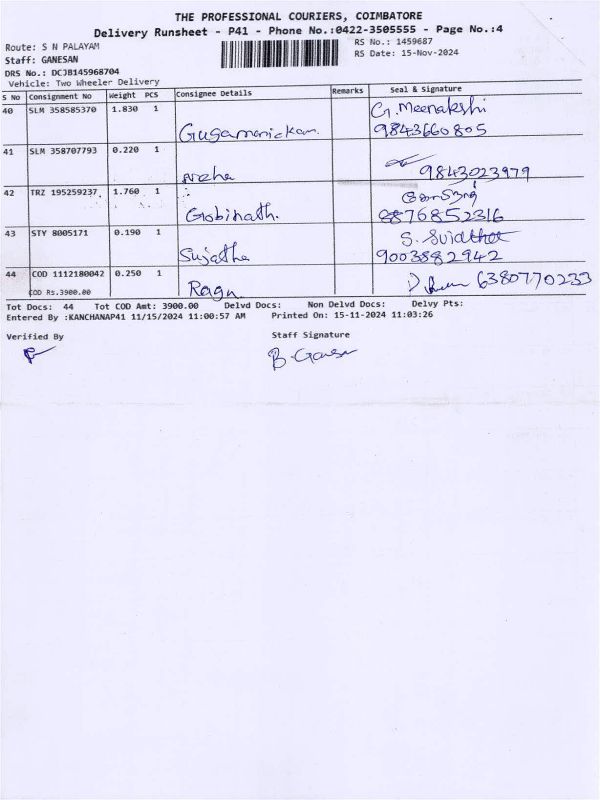 THE PROFESSIONAL COURIERS, COIMBATORE
Delivery Runsheet - P41 - Phone No.:0422-3505555 - Page No.:4
Route: S N PALAYAM
RS No.: 1459687
Staff: GANESAN
RS Date: 15-Nov-2024
DRS No.: DCJB145968704
Vehicle: Two Wheeler Delivery
S No Consignment No Weight PCS Consignee Details Remarks Seal & Signature
40 SLM 358585370 1.830 1 G. Meenakshi
Gugamanickam. 9843660805
41 SLM 358707793 0.220 1
9843023979
42 TRZ 195259237 1.760 1
Gobinath. 8876852316
43 STY 8005171 0.190 1 S. Sujatha
Sujatha 9003882942
44 COD 1112180042 0.250 1
COD Rs.3900.00 Ragu 6380770233
Tot Docs: 44 Tot COD Amt: 3900.00 Delvd Docs: Non Delvd Docs: Delvy Pts:
Entered By :KANCHANAP41 11/15/2024 11:00:57 AM Printed On: 15-11-2024 11:03:26
Verified By Staff Signature
B. Ganesa